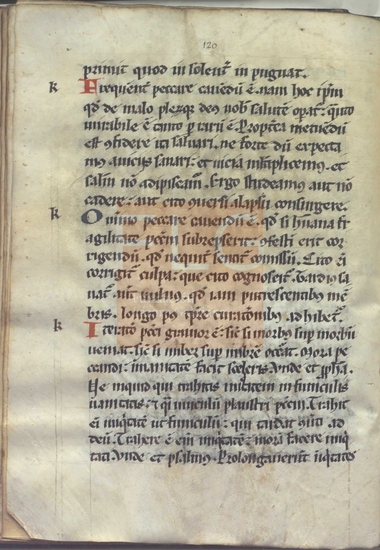 120
primit quod insolent inpugnat.
k Frequent peccare cauendū ē. nam hoc ipm
qd de malo plerūqe deus nob salute opat. quāto
mirabile ē tanto p rarū ē. Propterea metuendū
est 9fidere ita saluari. ne forte dum expecta
mus a uiciis sanari. et uicia multiplicemus. et
salutem nō adipiscam. Ergo studeamus aut nō
cadere. aut cito 9uersi a lapsu consurgere.
k Omnino peccare cauendū ē. qd si humana fra
agilitate peccm subrepserit. 9festi erit cor
rigendū. qd nequit sentit comissū. Cito eni
corrigit culpa. que cito cognoscit. Tardius sa
nat aut uulnus. qd iam putrescentibus mem
bris. longo post tpre curationibus adhibetur.
k Iteratio peccti grauior ē. sic si morbus sup morbū
ueniat. sic si imber sup imbre occat. Mora pec
candi. inmanitatē facit sceleris. Vnde et pphta.
Ve inquid qui trahitis iniqtatem in funiculis
uanitatis. et qsi uinculū plaustri peccm. Trahit
eni iniqtatē ut funiculum. qui tardat 9uti ad
deum. Trahere ē eni iniqtatē. moram facere iniq
tati. Vnde et psalmus. Prolongauerunt iniqtates